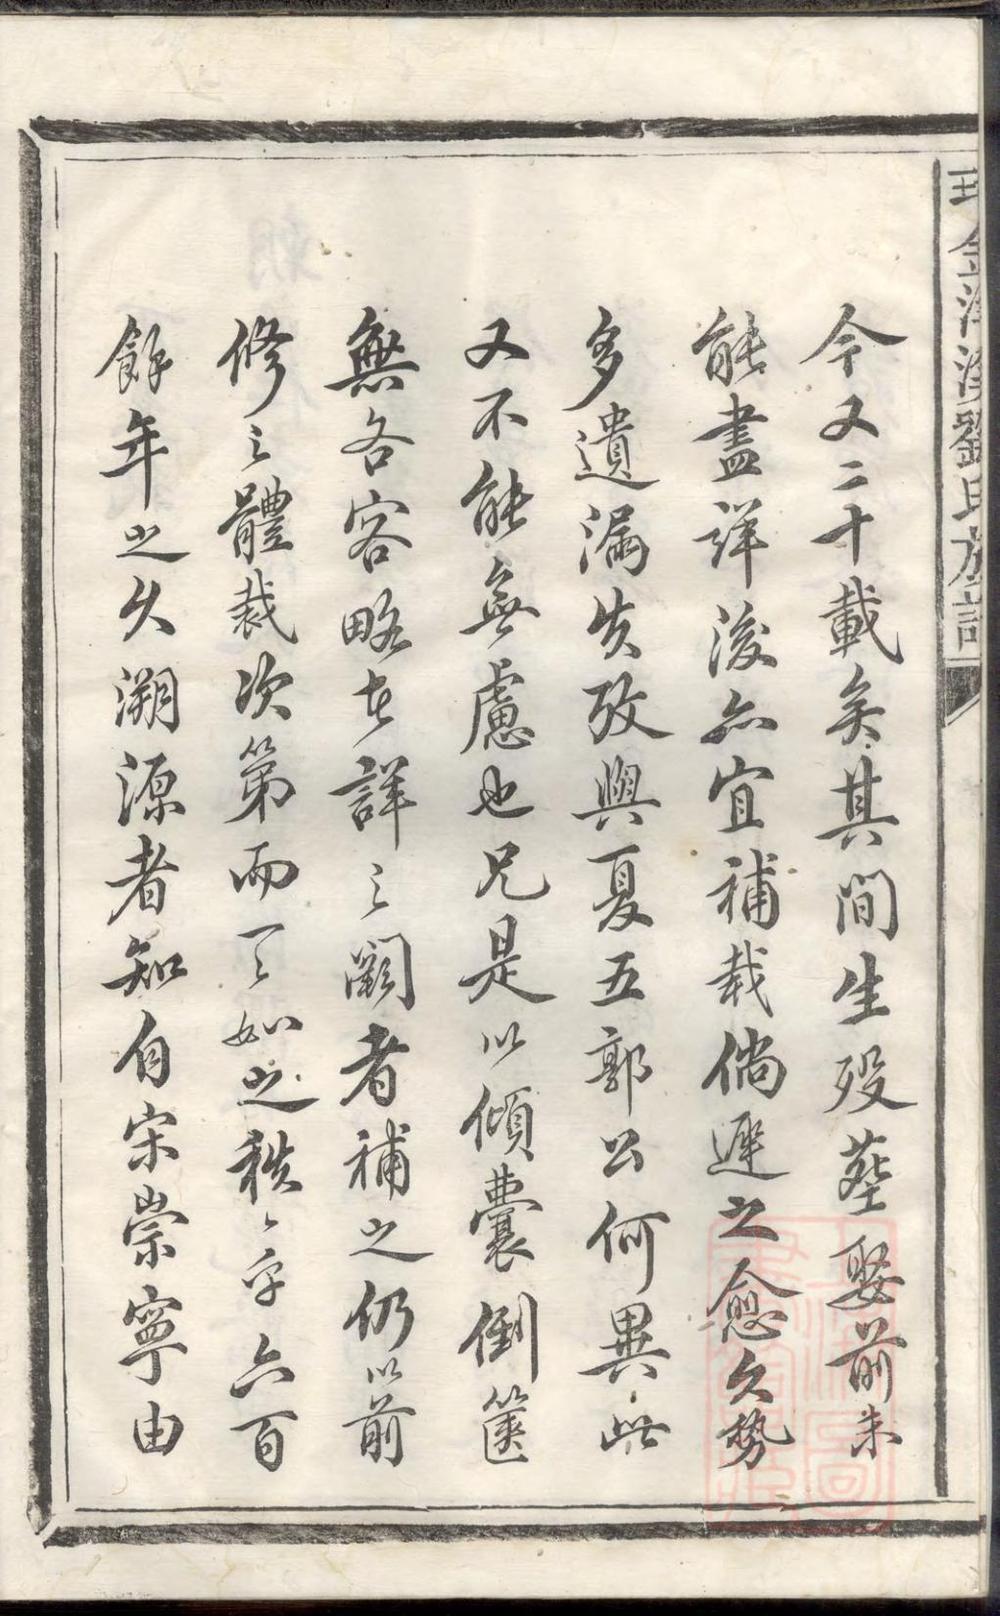 金 劉氏族譜
今又二十載矣其間生殁塟娶前未
能盡詳後亦宜補栽倘遲之愈久勢
多遺漏失攷與夏五郭公何異此
又不能無慮也兄是以傾囊倒篋
無各客略者詳之闕者補之仍以前
修之體裁次第而一一如之秩〻乎六百
餘年之久溯源者知自宋崇寧由